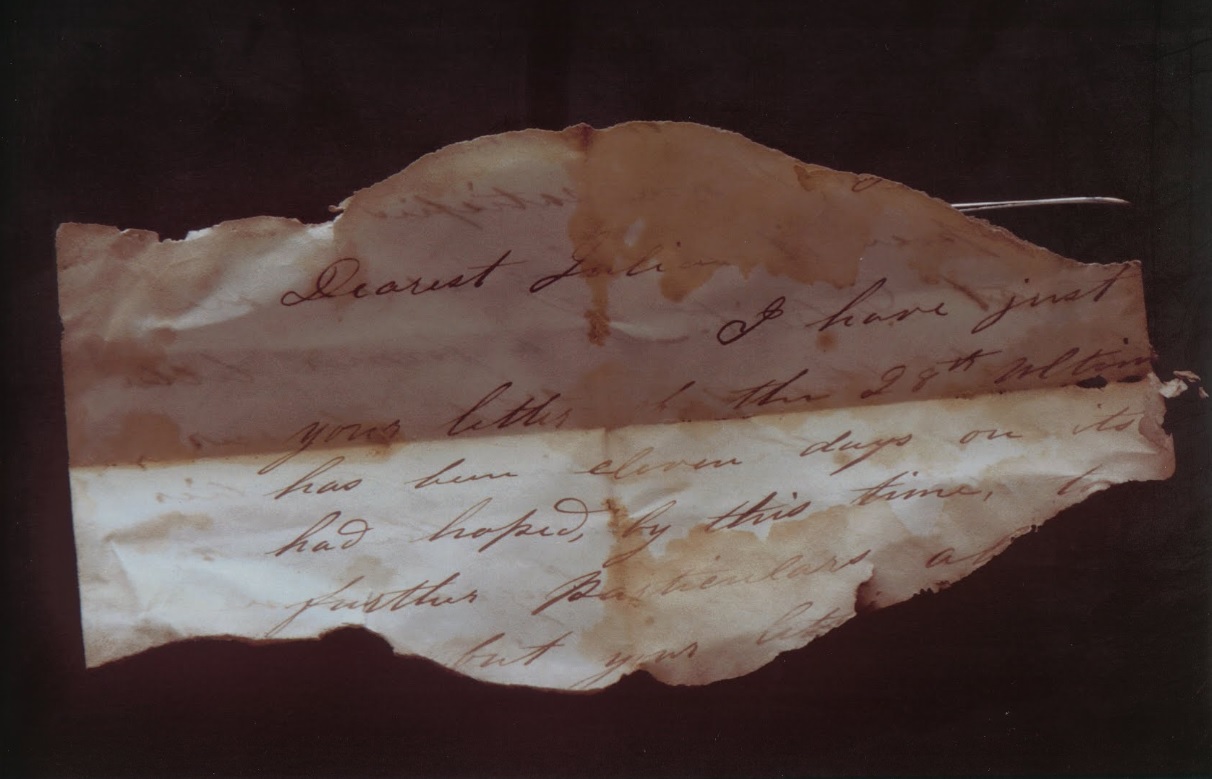 Dearest Juli
I have just
your letter the 28th Ultim
has been eleven days on its
had hoped, by this time,
further particulars
but your